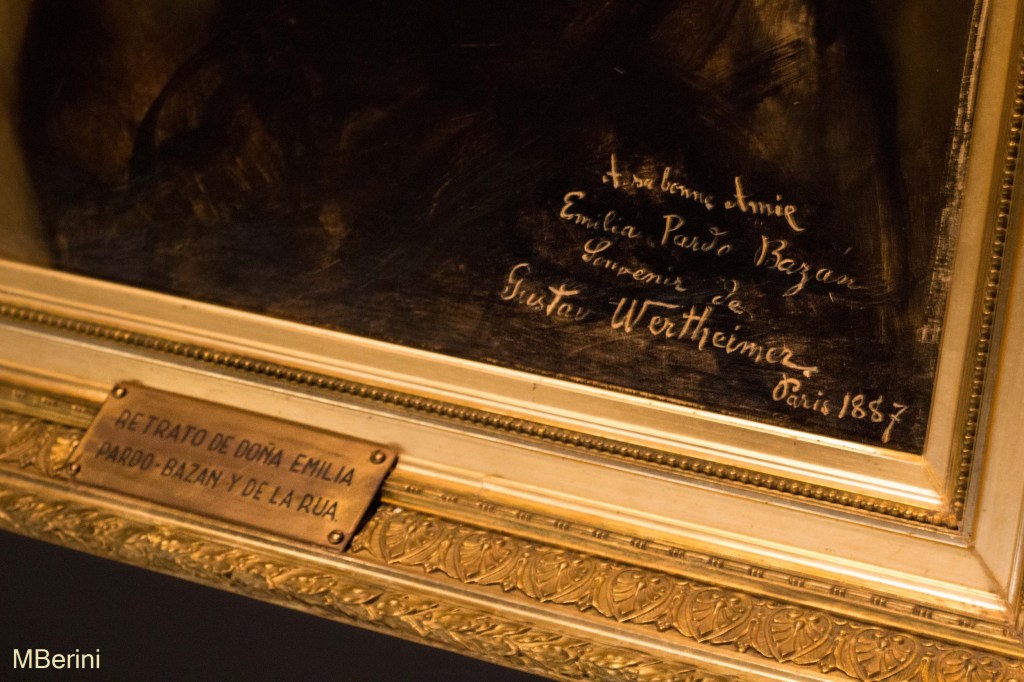 A sa bonne Amie
Emilia Pardo Bazán
Souvenir de
Gustav Wertheimer
Paris 1887
RETRATO DE DOÑA EMILIA
PARDO-BAZAN Y DE LA RUA.
MBerini